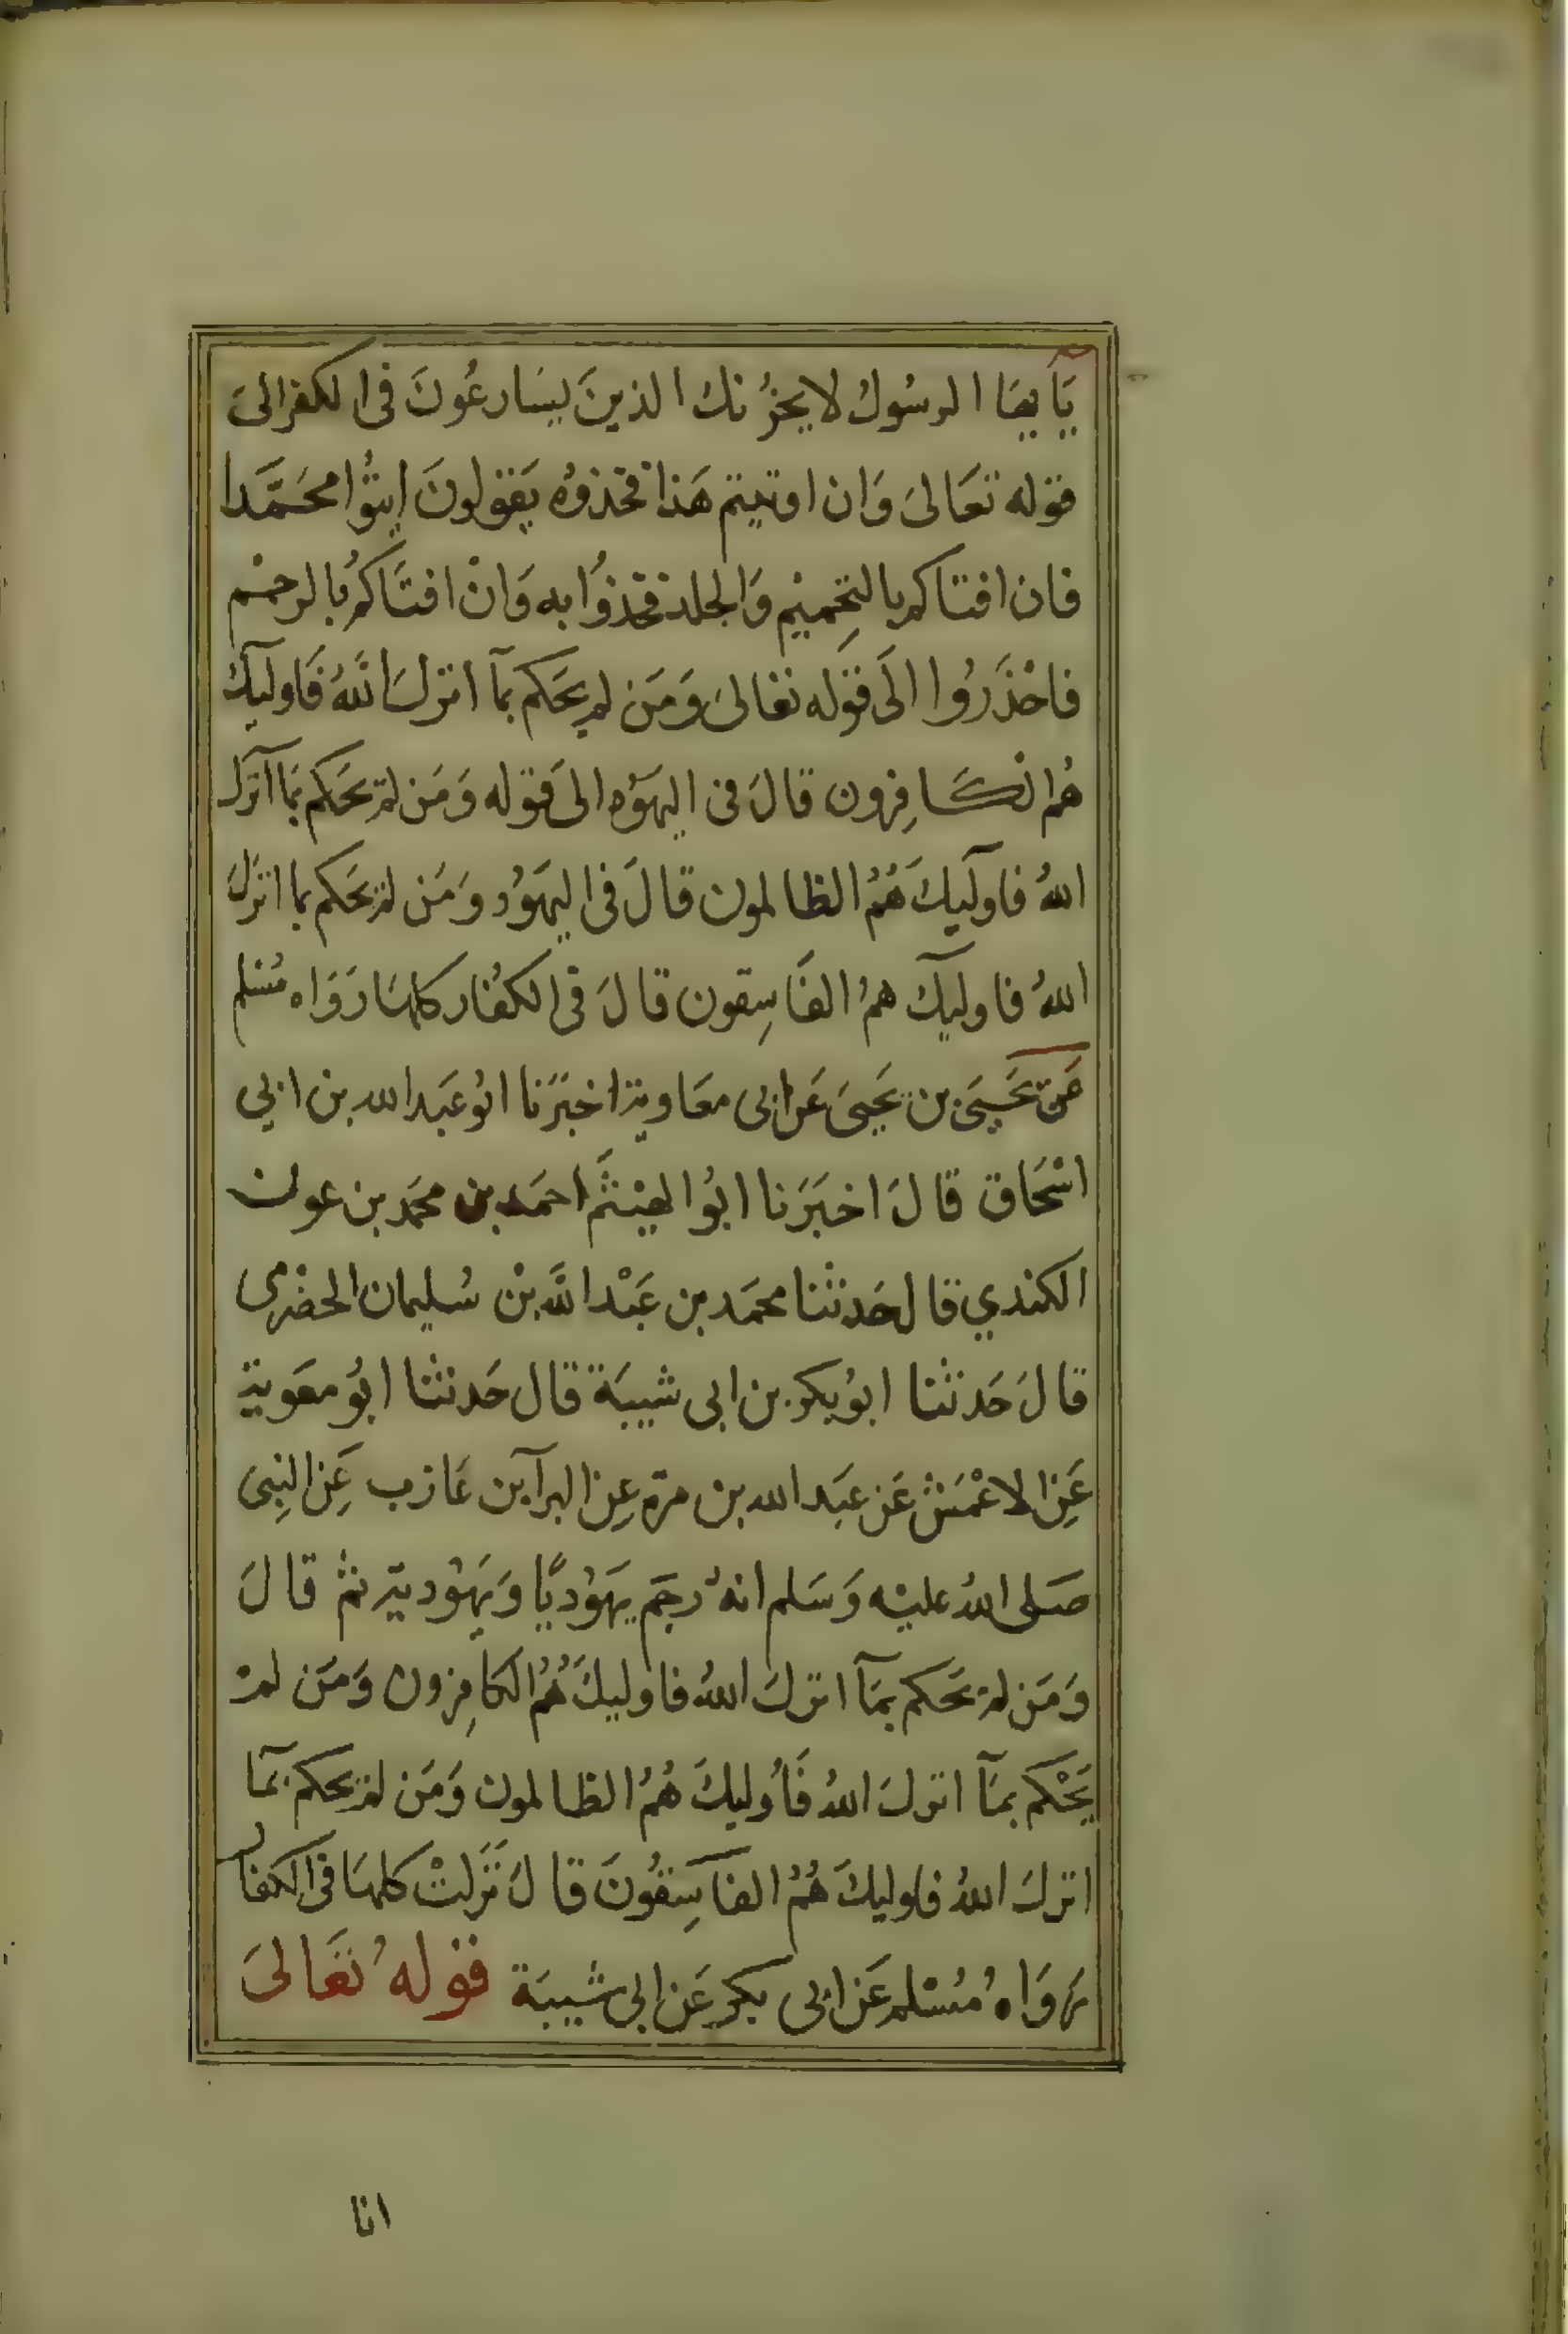 يَآيها الرسُولُ لا يحزُنك الذينَ يسَارعُونَ في الكفر الىَ
قوله تعَالىَ وَان اوتيتم هَذا فخذوُه يَقولونَ ايتُوا محَمَّدا
فان افتاكم بالتحِميم وَالجلد فخذوُا به وَانْ افتَاكمُ بالرجْم
فاحْذَرُوا الَى قوله تعالىَ وَمَن لم يحَكم بمآ انزلَ اللهُ فَاوليكَ
هُم الكَافِرون قالَ في اليهَوُد الىَ قوله وَمَن لمْ يحَكم بمَا انزل
اللهُ فاولَيكَ هُمُ الظالمون قالَ في اليهَوُد وَمَن لمْ يحَكم بما انزَلَ
اللهُ فاوليكَ همُ الفَاسِقون قالَ في الكفُار كلهَا رَوَاه مُسْلم
عَن يحَيىَ بن يَحيىَ عَن ابى معَاوية اخبَرَنا ابُو عَبد الله بن ابي
اسْحَاق قالَ اخبَرَنا ابُوا الهيْثَم احمَد بن محمَد بن عون
الكندي قال حَدثنا محمَد بن عَبْد اللَّه بْن سُليمان الحضْرمى
قالَ حَدثنا ابوُبكر بن ابى شيبَة قال حَدثنا ابوُ معَوية
عَنِ الاعْمَش عَن عبَد الله بن مرّه عِن البرآ بن عَازب عَنِ النبِى
صَلى اللهُ عليْه وَسَلم انهُ رجَم يهَوُديًّا وَيهَوُدية ثم قالَ
وَمَن لمْ يحَكم بمَآ انزلَ اللهُ فاوليكَ هُمُ الكافِرون وَمَن لمْ
يَحْكم بمَآ انزلَ اللهُ فَاوُليكَ هُمُ الظالمون وَمَن لمْ يحكم بمَآ
انزلَ اللهُ فاوليكَ هُمُ الفاسَِقُونَ قالَ نَزَلتْ كلهَا في الكفار
رَوَاهُ مُسْلم عَن ابى بكر عَن ابى شيبَة قولهُ تعَالىَ
انا